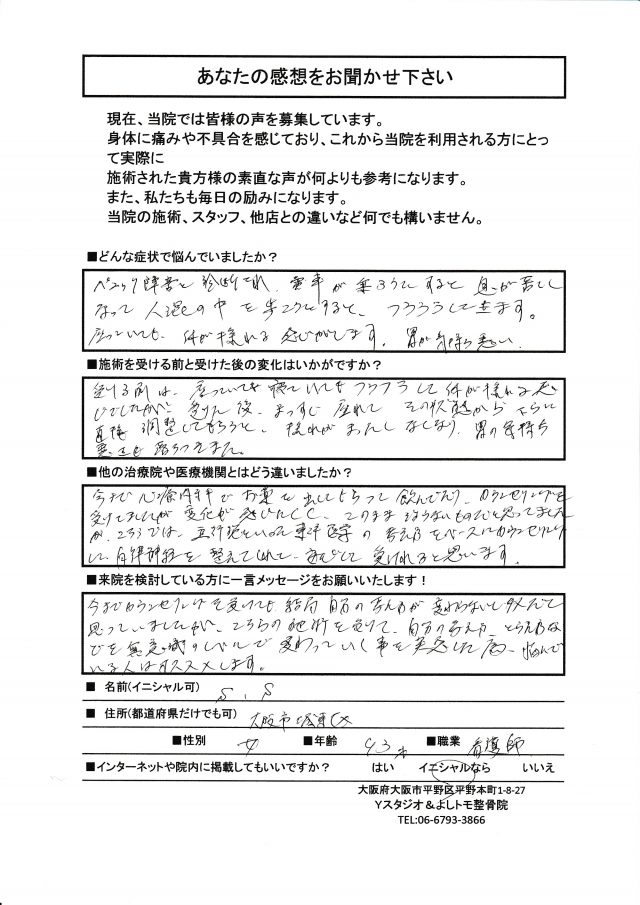 あなたの感想をお聞かせ下さい
現在、当院では皆様の声を募集しています。
身体に痛みや不具合を感じており、これから当院を利用される方にとっ
て実際に
施術された貴方様の素直な声が何よりも参考になります。
また、私たちも毎日の励みになります。
当院の施術、スタッフ、他店との違いなど何でも構いません。
■どんな症状で悩んでいましたか？
パニック障害と診断され、電車が乗ろうとすると息が苦しく
なって人混の中を歩こうとすると、フラフラしてきます。
座っていても、体が揺れる感じがします。胃が気持ち悪い。
■施術を受ける前と受けた後の変化はいかがですか？
受ける前は、座っていても寝ていてもフラフラして体が揺れる感
じでしたが、受けた後、まっすぐ座れて その状態からさらに
直接調整してもらうと、揺れがおたしなくなり、胃の気持ち
悪さも落ちつきました。
■他の治療院や医療機関とはどう違いましたか？
今まで心療内科でお薬を出してもらって飲んでたり、カウンセリングを
受けてましたが変化が感じにくく、このまま治らないものだと思ってました
が、こちらでは、五行説といった東洋医学の考え方をベースにカウンセリング
し、自律神経を整えてくれて、安心して受けれると思います。
■来院を検討している方に一言メッセージをお願いいたします！
今までカウンセリングを受けても結局自分の考え方が変わらないとダメだと
思っていましたが、こちらの施術を受けて、自分の考え方、とらえ方な
どを無意識のレベルで変わっていく事を実感した為、悩んで
いる人はオススメします。
■ 名前(イニシャル可) S.S
■ 住所(都道府県だけでも可) 大阪市城東区
■性別 女 ■年齢 43才 ■職業 看護師
■インターネットや院内に掲載してもいいですか？ はい イニシャルなら いいえ
大阪府大阪市平野区平野本町1-8-27
Yスタジオ＆よしトモ整骨院
TEL:06-6793-3866